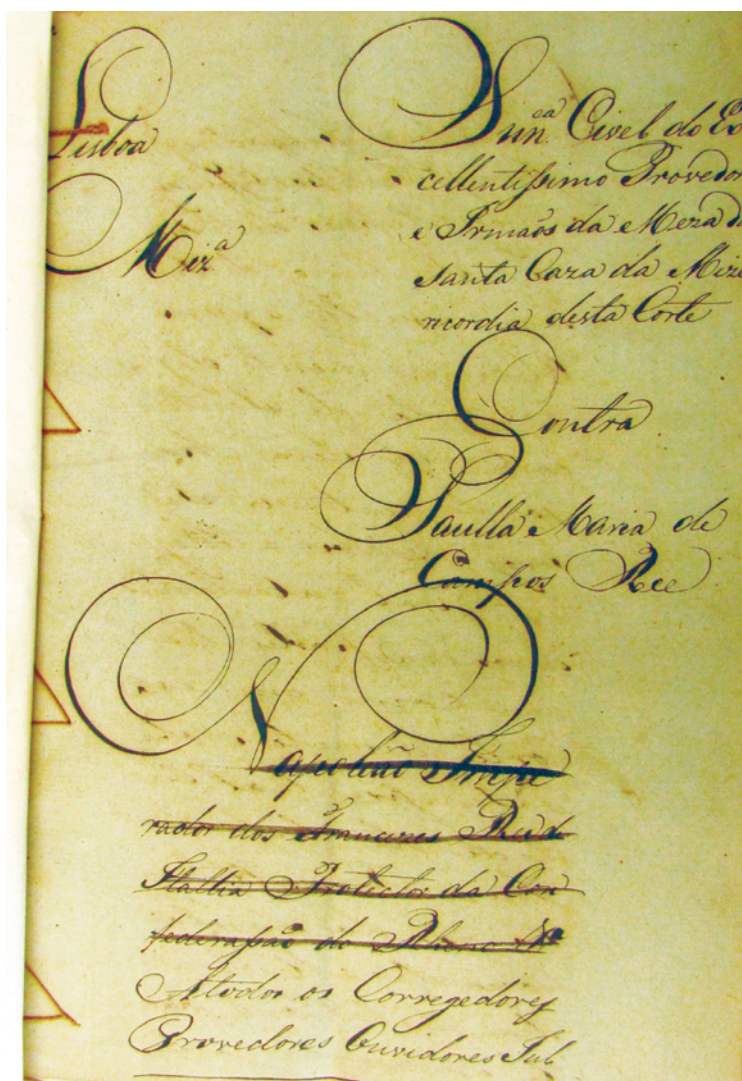 Lisboa
Miz.ª
Sunᵉᵃ Civel do Ex
cellentissimo Provedor
e Irmaõs da Meza da
Santa Caza da Mize
ricordia desta Corte
Contra
Paulla Maria de
Campos Ree
Napoliaõ Impe
rador dos Francezes Rei de
Itallia Protector da Con
federassaõ do Rheno
Atodos os Corregedores
Provedores Ouvidores Jul